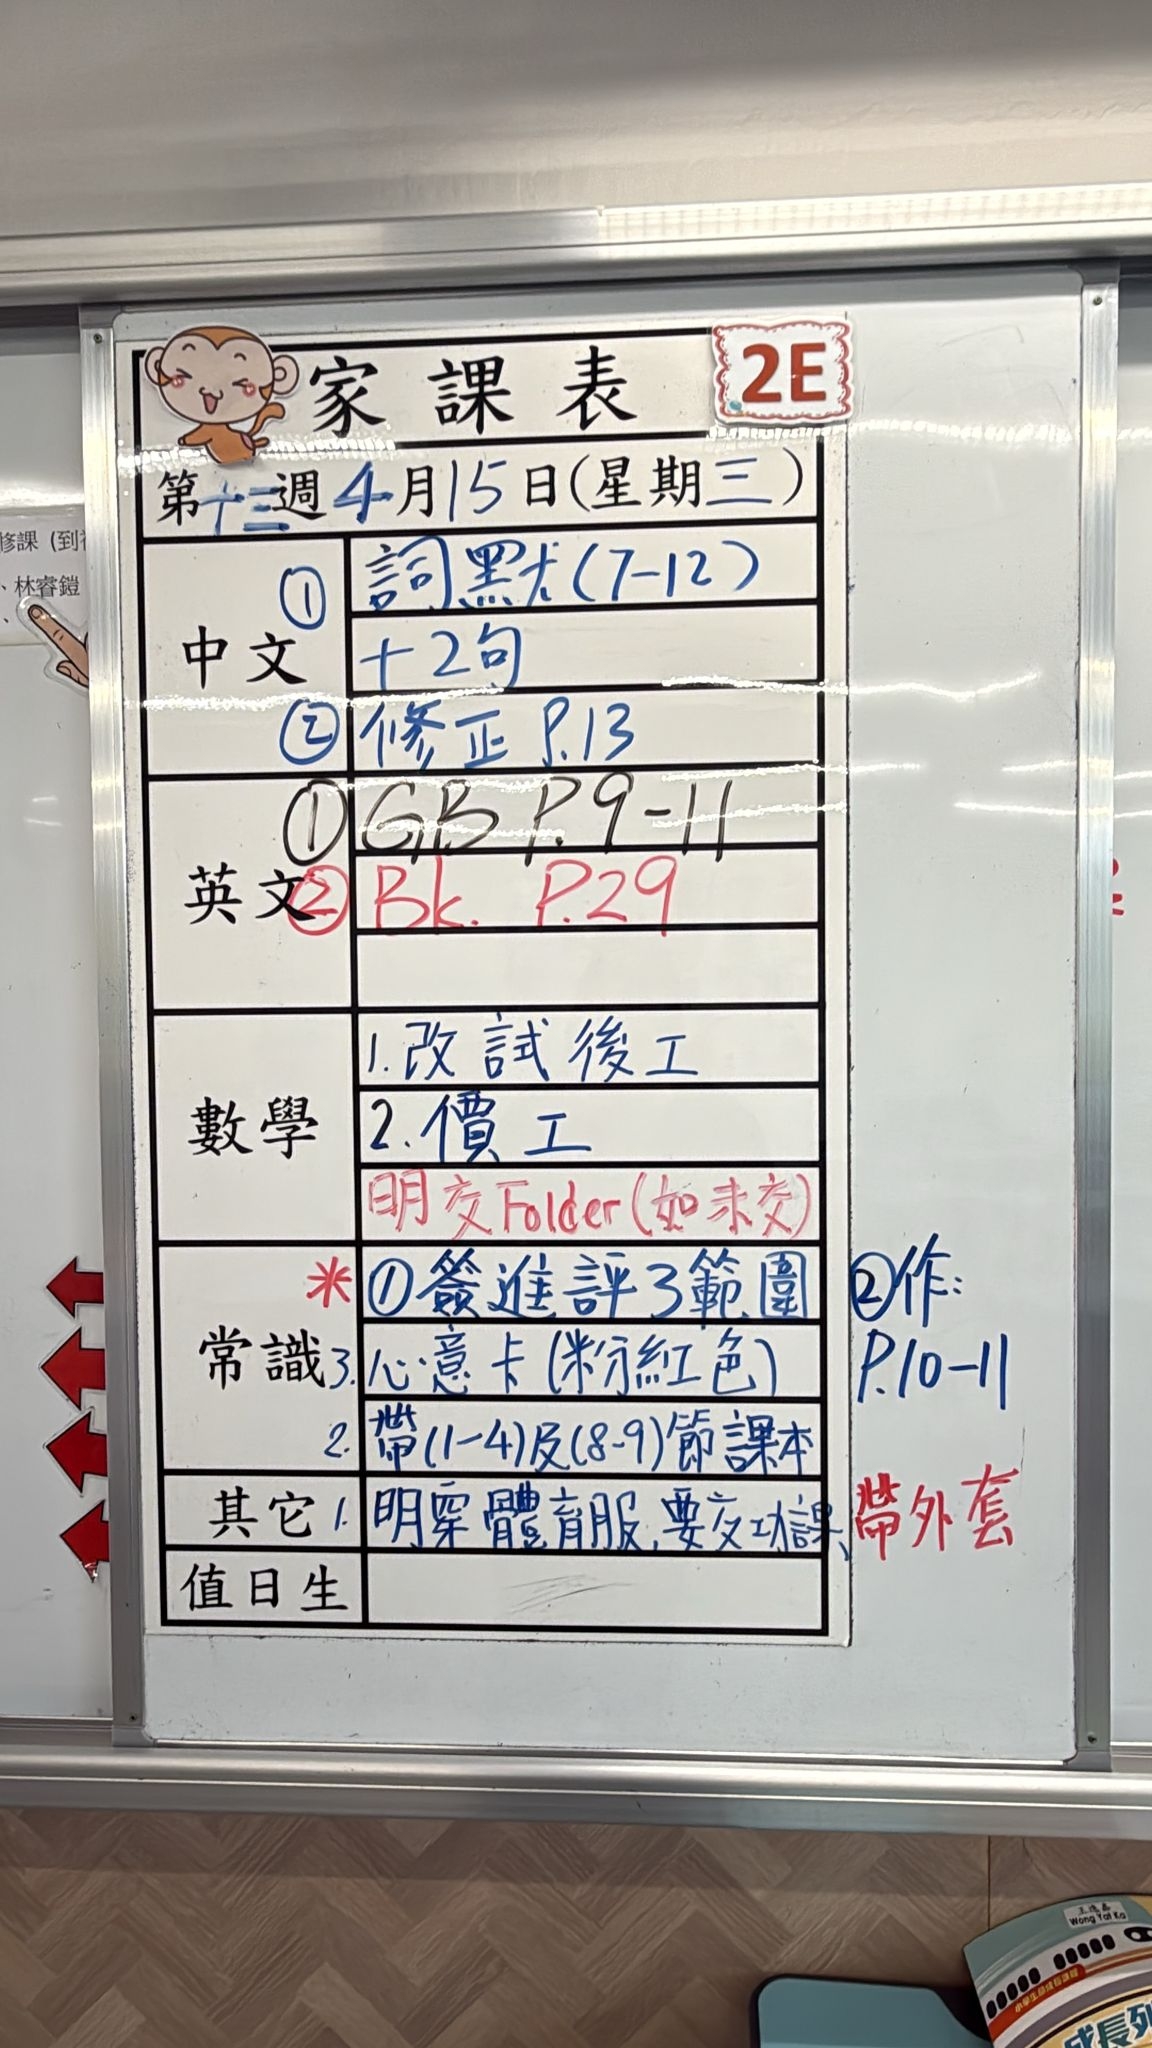 家課表 2E
第十三週4月15日(星期三)
修課 (到
、林睿鎧
、
中文
① 詞默(7-12)
+2句
② 修正 P.13
英文
① GB P.9-11
② Bk. P.29
數學
1.改試後工
2.價工
明交Folder(如未交)
常識
* ①簽進評3範圍 ②作:
P.10-11
3.心意卡(粉紅色)
2.帶(1-4)及(8-9)節課本
其它 1.明穿體育服、要交功課、帶外套
值日生
Wong Yat Ka
成長列